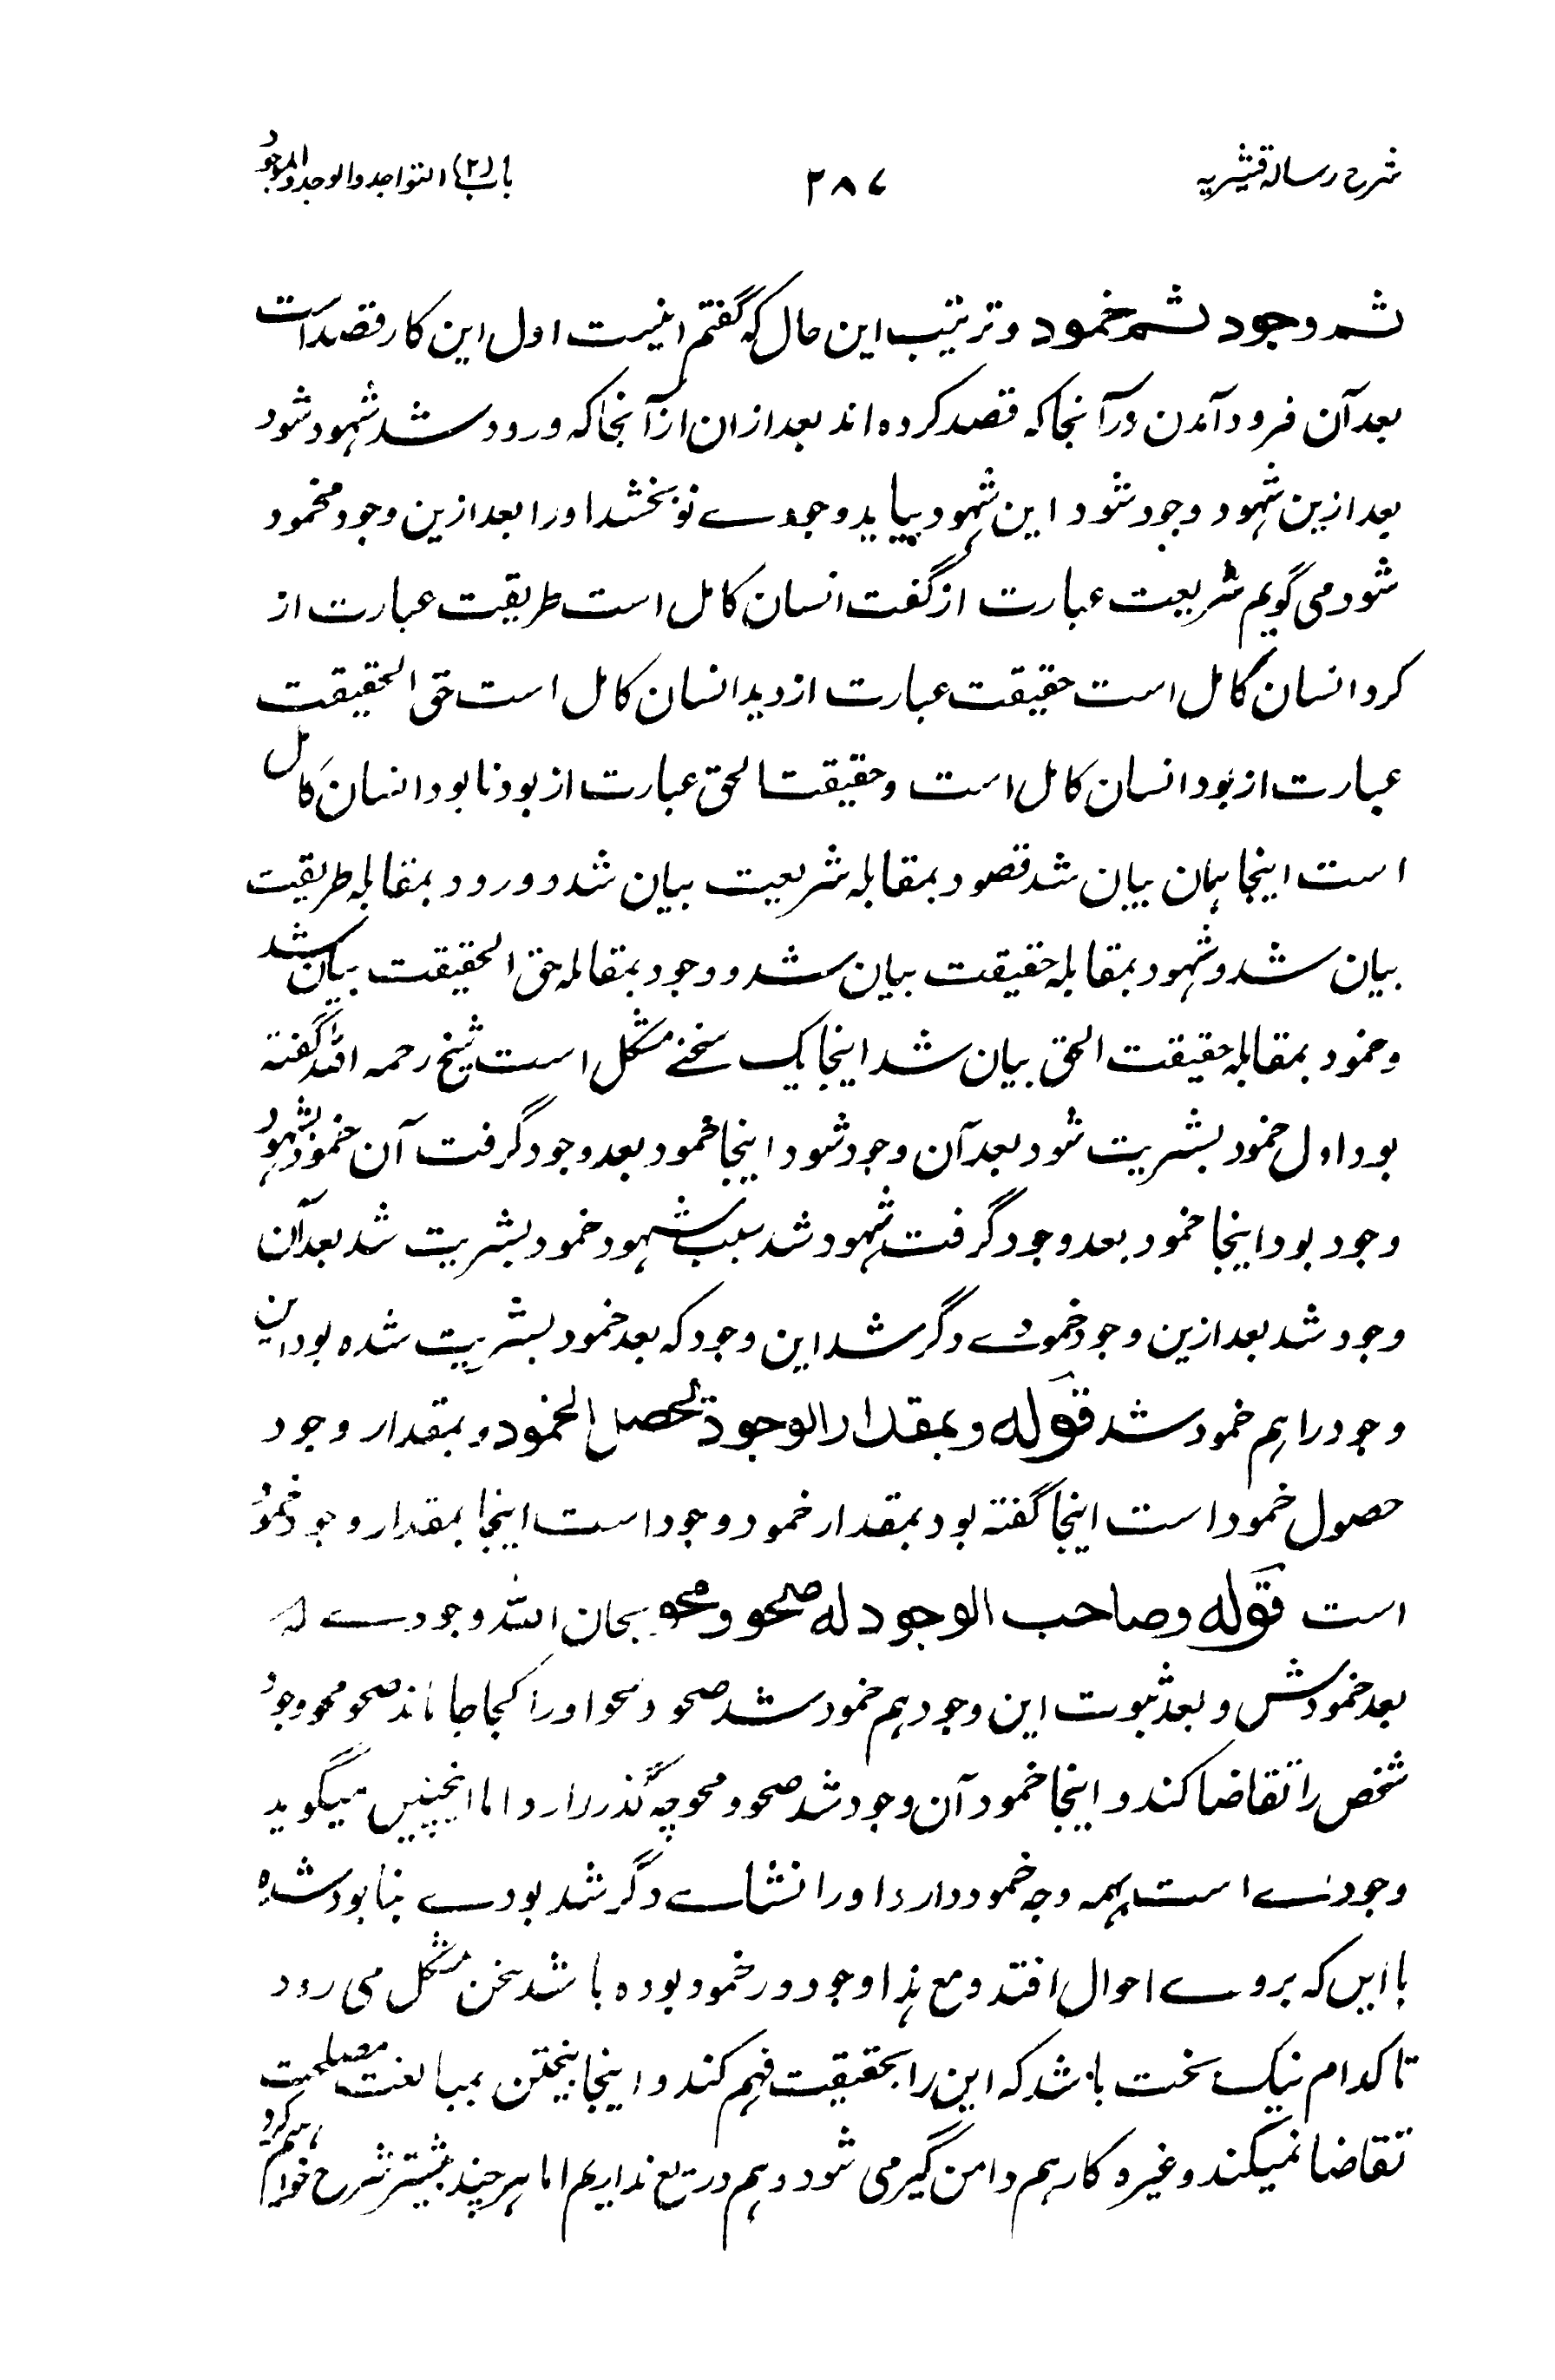 شرح رسالہ قشیریہ
۲۸۷
باب (۲) التواجد والوجد والوجود
ثم وجود ثم خمود و ترتیب این حال که گفتم اینست اول این کار قصد است
بعد آن فرود آمدن در آنجا که قصد کرده اند بعد ازان از آنجا که ورود شد شهود شود
بعد ازین شهود وجود شود این شهود بیاید وجودے نو بخشد او را بعد ازین وجود خمود
شود می گویم شریعت عبارت از گفت انسان کامل است طریقت عبارت از
کرد انسان کامل است حقیقت عبارت از دید انسان کامل است حق الحقیقت
عبارت از بود انسان کامل است و حقیقت الحق عبارت از بود نابود انسان کامل
است اینجا همان بیان شد قصود بمقابله شریعت بیان شد و ورود بمقابله طریقت
بیان شد و شهود بمقابله حقیقت بیان شد و وجود بمقابله حق الحقیقت بیان شد
و خمود بمقابله حقیقت الحق بیان شد اینجا یک سخنے مشکل است شیخ رحمه الله گفته
بود اول خمود بشریت شود بعد آن وجود شود اینجا خمود بعد وجود گرفت آن خمود شهود
وجود بود اینجا خمود بعد وجود گرفت شهود شد سبب شهود خمود بشریت شد بعد آن
وجود شد بعد ازین وجود خمودے دگر شد این وجود که بعد خمود بشریت شده بود این
وجود را هم خمود شد قوله و بمقدار الوجود تحصل الخمود و بمقدار وجود
حصول خمود است اینجا گفته بود بمقدار خمود وجود است اینجا بمقدار وجود خمود
است قوله وصاحب الوجود له صحو و محو سبحان الله وجودے که
بعد خمودش و بعد ثبوت این وجود هم خمود شد صحو و محو او را کجا جا ماند صحو محو وجود
شخص را تقاضا کند و اینجا خمود آن وجود شد صحو و محو چه گذر دارد اما اینچنین میگوید
وجودے است بهمه وجه خمود دارد او را نشاے دگر شد بودے بنابود شده
با این که بروے احوال افتد و مع هذا وجود در خمود بوده باشد سخن مشکل می رود
تا کدام نیک بخت باشد که این را بحقیقت فهم کند و اینجا بیختن بمبالغت مصلحت
تقاضا نمیکند و غیره کار هم دامن گیر می شود و هم دریغ نداریم اما هر چند بیشتر شرح خواهیم کرد